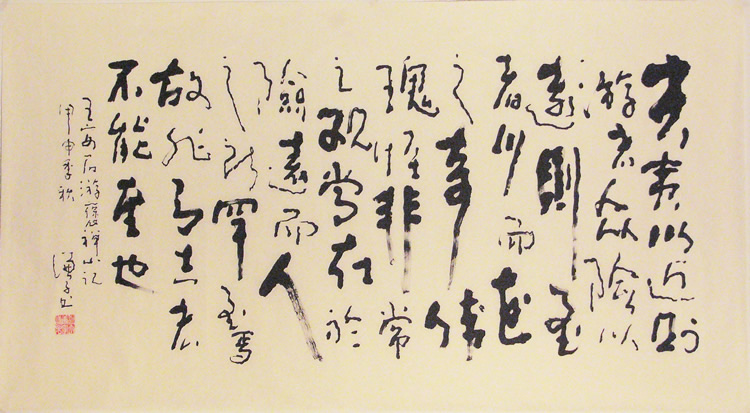 夫夷以近则
游者众險以
遠則至
者少而世
之奇偉
瑰怪非常
之观常在於
險遠而人
之所罕至焉
故非有志者
不能至也
王安石游褒禅山记
甲申季秋